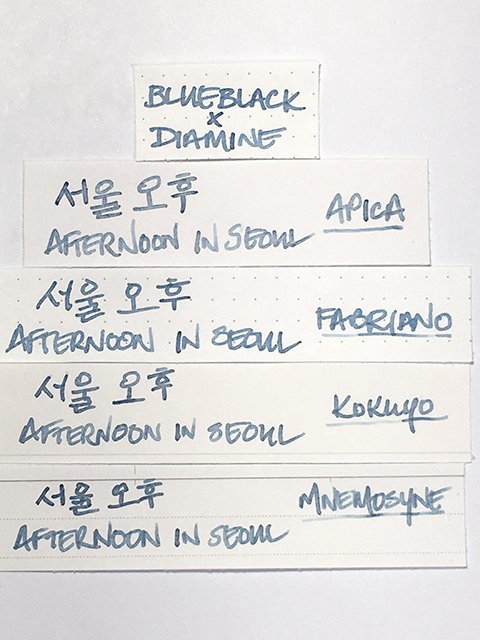 BLUEBLACK
x
DIAMINE
서울 오후
AFTERNOON IN SEOUL
APICA
서울 오후
AFTERNOON IN SEOUL
FABRIANO
서울 오후
AFTERNOON IN SEOUL
KOKUYO
서울 오후
AFTERNOON IN SEOUL
MNEMOSYNE